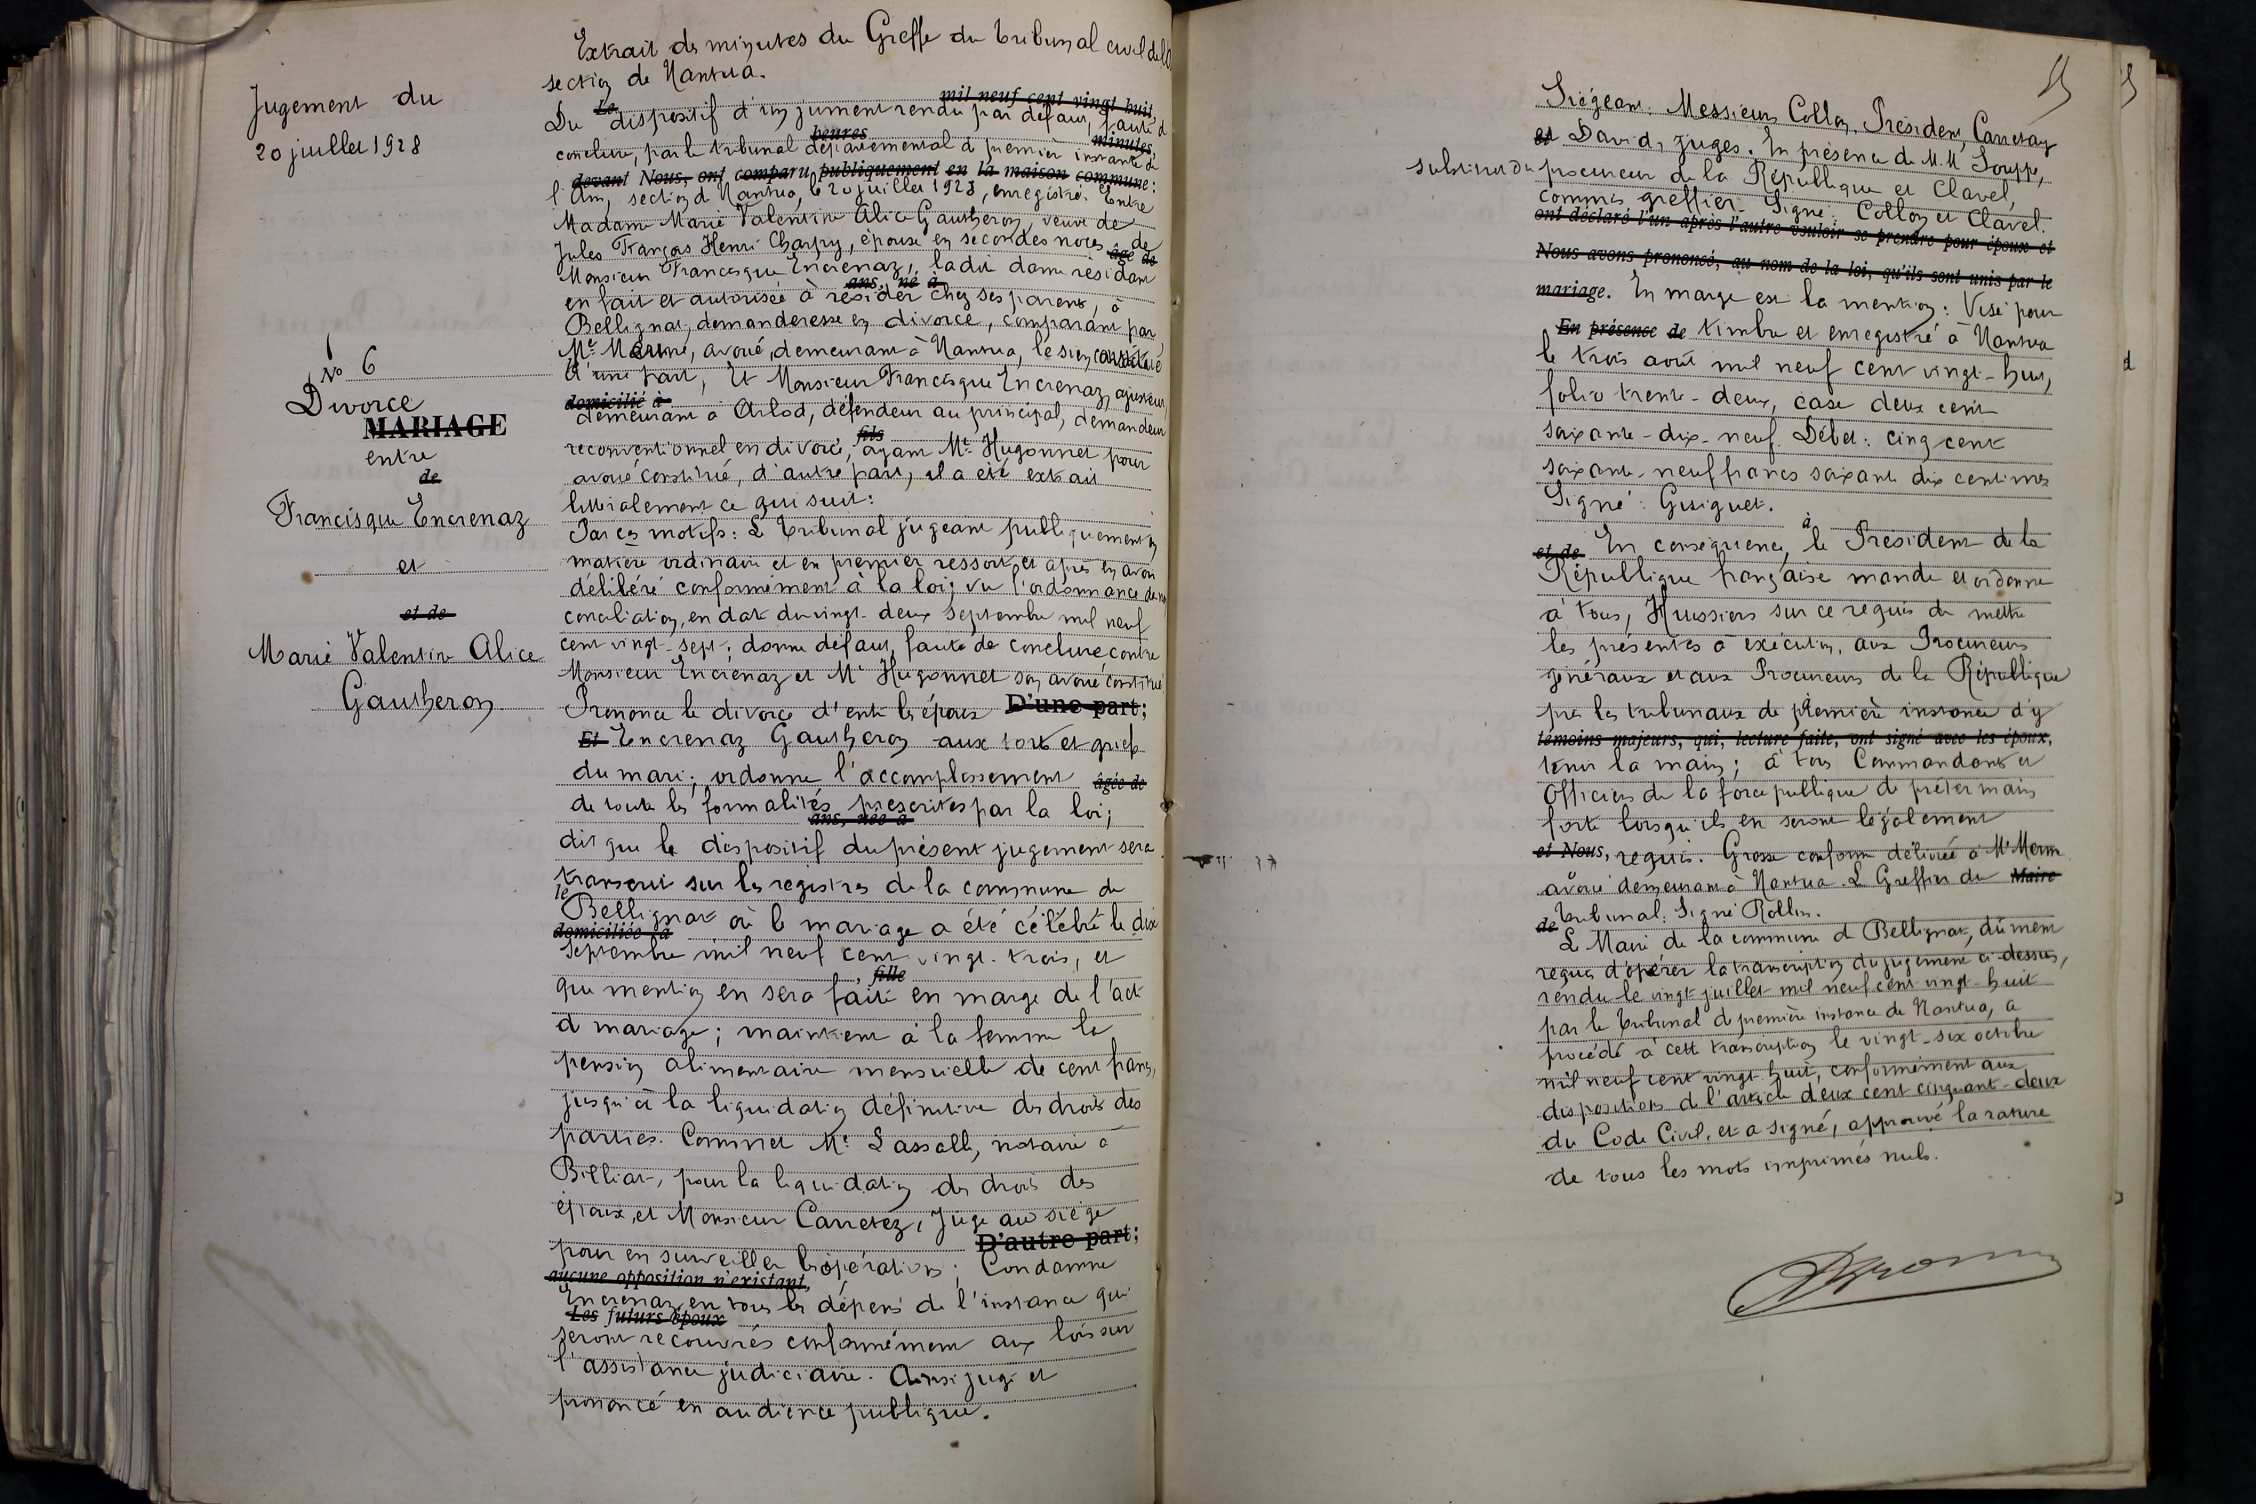 Jugement du
20 juillet 1928
N° 6
Divorce
MARIAGE
entre
de
Francisque Encrenaz
et
et de
Marie Valentine Alice
Gautheron
Extrait des minutes du Greffe du tribunal civil de la
section de Nantua.
Le mil neuf cent vingt huit,
Du dispositif d'un jument rendu par défaut, faute d
heures minutes,
conclure, par le tribunal départemental d premier instance d
devant Nous, ont comparu publiquement en la maison commune :
l'Ain, section d Nantua, le 20 juillet 1928, enregistré. Entre
Madame Marie Valentine Alice Gautheron, veuve de
Jules François Henri Charpy, épouse en secondes noces de
âgé de
Monsieur Francisque Encrenaz, ladite dame résidant
ans, né à
en fait et autorisée à résider chez ses parents, à
Bellignat, demanderesse en divorce, comparant par
Me Mermé, avoué, demeurant à Nantua, le sien constitué
d'une part, Et Monsieur Francisque Encrenaz, ajusteur,
domicilié à
demeurant à Arlod, défendeur au principal, demandeur
fils
reconventionnel en divorce, ayant Me Hugonnet pour
avoué constitué, d'autre part, il a été extrait
littéralement ce qui suit :
Par ces motifs : Le tribunal jugeant publiquement en
matière ordinaire et en premier ressort et après en avoir
délibéré conformément à la loi ; vu l'ordonnance de non
conciliation, en date du vingt-deux septembre mil neuf
cent vingt-sept ; donne défaut, faute de conclure contre
Monsieur Encrenaz et Me Hugonnet son avoué constitué
Prononce le divorce d'entre les époux D'une part ;
Et Encrenaz Gautheron aux torts et griefs
du mari ; ordonne l'accomplissement âgée de
de toute les formalités prescrites par la loi ;
ans, née à
dit que le dispositif du présent jugement sera
transcrit sur les registres de la commune de
le
Bellignat où le mariage a été célébré le dix
domiciliée à
septembre mil neuf cent vingt-trois, et
, fille
que mention en sera faite en marge de l'acte
d mariage ; maintient à la femme la
pension alimentaire mensuelle de cent francs,
jusqu'à la liquidation définitive des droits des
parties. Commet Me Lassalle, notaire à
Billiat, pour la liquidation des droits des
époux, et Monsieur Carretez, Juge au siège
D'autre part ;
pour en surveiller les opérations ; Condamne
aucune opposition n'existant,
Encrenaz en tous les dépens de l'instance qui
Les futurs époux
seront recouvrés conformément aux lois sur
l'assistance judiciaire. Ainsi jugé et
prononcé en audience publique.
Siégeant : Messieurs Collon, Président, Carretay
et David, juges. En présence de M.M Souppe,
substitut du procureur de la République et Clavel,
commis greffier. Signé : Collon et Clavel.
ont déclaré l'un après l'autre vouloir se prendre pour époux et
Nous avons prononcé, au nom de la loi, qu'ils sont unis par le
mariage. En marge est la mention : Visé pour
En présence de timbre et enregistré à Nantua
le trois août mil neuf cent vingt-huit,
folio trente-deux, case deux cent
soixante-dix-neuf. Débet : cinq cent
soixante-neuf francs soixante dix centimes
Signé : Guiguet.
à
et de En conséquence, le Président de la
République française mande et ordonne
à tous, Huissiers sur ce requis de mettre
les présentes à exécution, aux Procureurs
généraux et aux Procureurs de la République
près les tribunaux de première instance d'y
témoins majeurs, qui, lecture faite, ont signé avec les époux,
tenir la main ; à tous Commandants et
Officiers de la force publique de prêter main
forte lorsqu'ils en seront légalement
et Nous, requis. Grosse conforme délivrée à Me Merm
avoué demeurant à Nantua. Le Greffier du Maire
de tribunal : Signé Rollin.
Le Maire de la commune d Bellignat, dûment
requis d'opérer la transcription du jugement ci-dessus,
rendu le vingt juillet mil neuf cent vingt-huit
par le tribunal d première instance de Nantua, a
procédé à cette transcription le vingt-six octobre
mil neuf cent vingt-huit, conformément aux
dispositions de l'article deux cent cinquante-deux
du Code Civil, et a signé, approuvé la rature
de tous les mots imprimés nuls.